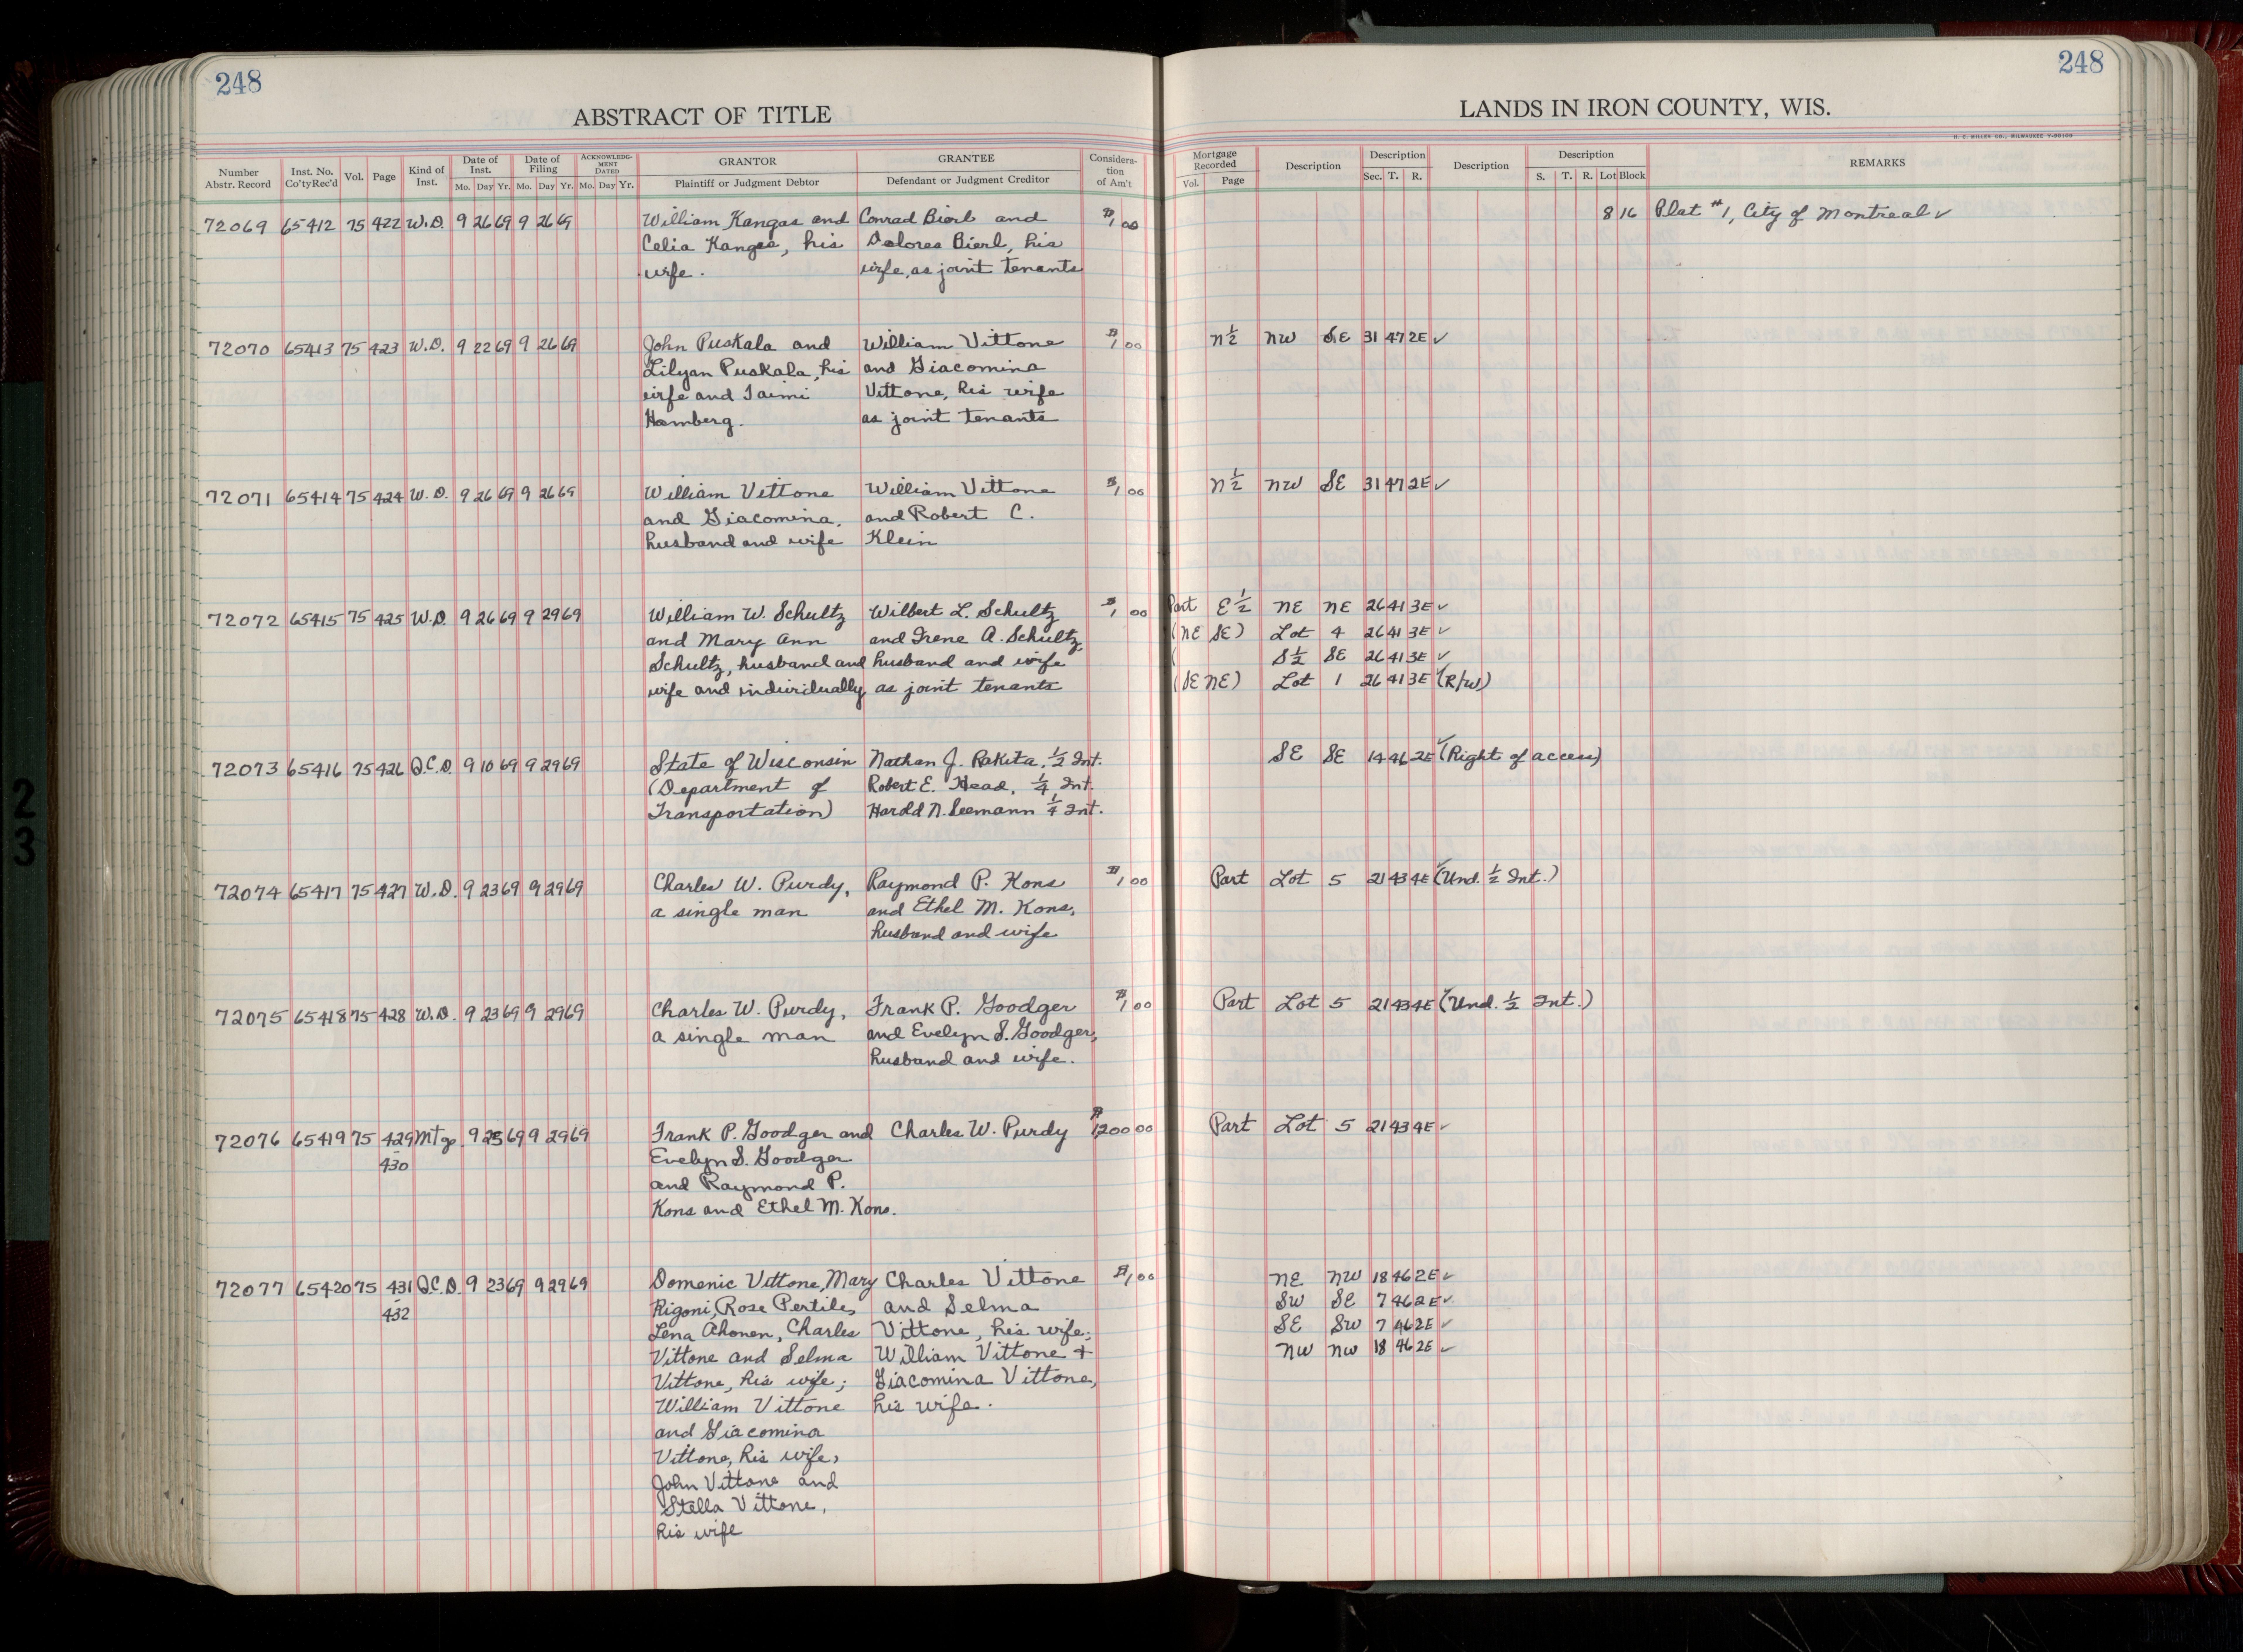 248
248
ABSTRACT OF TITLE
LANDS IN IRON COUNTY, WIS.
H. C. MILLER CO., MILWAUKEE
Number Abstr. Record | Inst. No. Co'ty Rec'd | Vol. | Page | Kind of Inst. | Date of Inst. Mo. Day Yr. | Date of Filing Mo. Day Yr. | ACKNOWLEDGMENT DATED Mo. Day Yr. | GRANTOR Plaintiff or Judgment Debtor | GRANTEE Defendant or Judgment Creditor | Consideration of Am't | Mortgage Recorded Vol. Page | Description | Description Sec. T. R. | Description | Description S. T. R. Lot Block | REMARKS
72069 65412 75 422 W.D. 9 26 69 9 26 69 William Kangas and Conrad Bierl and $1 00 8 16 Plat #1, City of Montreal ✓
Celia Kangas, his Delores Bierl, his
wife. wife, as joint tenants
72070 65413 75 423 W.D. 9 22 69 9 26 69 John Puskala and William Vittone $1 00 N½ NW SE 31 47 2E ✓
Lilyan Puskala, his and Giacomina
wife and Taimi Vittone, his wife
Hamberg. as joint tenants
72071 65414 75 424 W.D. 9 26 69 9 26 69 William Vittone William Vittone $1 00 N½ NW SE 31 47 2E ✓
and Giacomina, and Robert C.
husband and wife Klein
72072 65415 75 425 W.D. 9 26 69 9 29 69 William W. Schultz Wilbert L. Schultz $1 00 Part E½ NE NE 26 41 3E ✓
and Mary Ann and Irene A. Schultz, (NE SE) Lot 4 26 41 3E ✓
Schultz, husband and husband and wife ( S½ SE 26 41 3E ✓
wife and individually as joint tenants (SE NE) Lot 1 26 41 3E ✓ (R/W)
72073 65416 75 426 Q.C.D. 9 10 69 9 29 69 State of Wisconsin Nathan J. Rakita, ½ Int. SE SE 14 46 2E ✓ (Right of access)
(Department of Robert E. Head, ¼ Int.
Transportation) Harold N. Leemann ¼ Int.
72074 65417 75 427 W.D. 9 23 69 9 29 69 Charles W. Purdy, Raymond P. Kons $1 00 Part Lot 5 21 43 4E ✓ (Und. ½ Int.)
a single man and Ethel M. Kons,
husband and wife
72075 65418 75 428 W.D. 9 23 69 9 29 69 Charles W. Purdy, Frank P. Goodger $1 00 Part Lot 5 21 43 4E ✓ (Und. ½ Int.)
a single man and Evelyn S. Goodger,
husband and wife.
72076 65419 75 429 Mtge 9 25 69 9 29 69 Frank P. Goodger and Charles W. Purdy $1200 00 Part Lot 5 21 43 4E ✓
- 430 Evelyn S. Goodger
and Raymond P.
Kons and Ethel M. Kons.
72077 65420 75 431 Q.C.D. 9 23 69 9 29 69 Domenic Vittone, Mary Charles Vittone $1 00 NE NW 18 46 2E ✓
- 432 Rigoni, Rose Pertile, and Selma SW SE 7 46 2E ✓
Lena Ahonen, Charles Vittone, his wife; SE SW 7 46 2E ✓
Vittone and Selma William Vittone + NW NW 18 46 2E ✓
Vittone, his wife; Giacomina Vittone,
William Vittone his wife.
and Giacomina
Vittone, his wife,
John Vittone and
Stella Vittone,
his wife
2
3